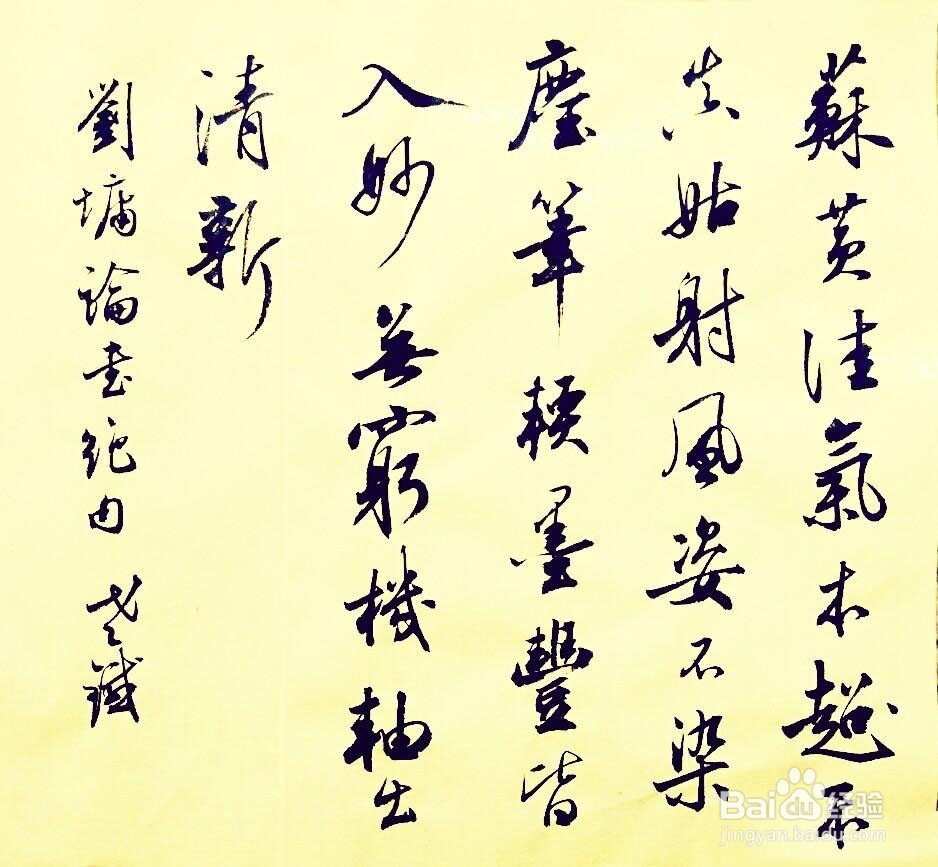 蘇黄佳氣本超不
真姑射風姿不染
塵筆輭墨豐皆
入妙無窮機軸出
清新
劉墉論書絕句 老鐵
Baidu经验
jingyan.baidu.com